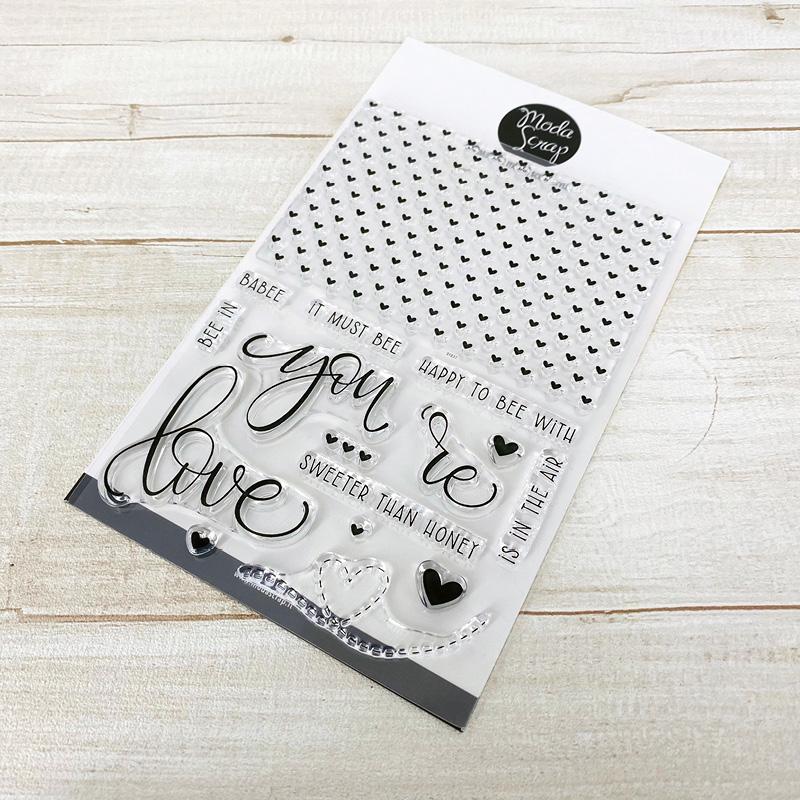 Moda
Scrap
BABEE
BEE iN
iT MUST BEE
you
HAPPY TO BEE WiTH
're
love
SWEETER THAN HONEY
iS iN THE AiR